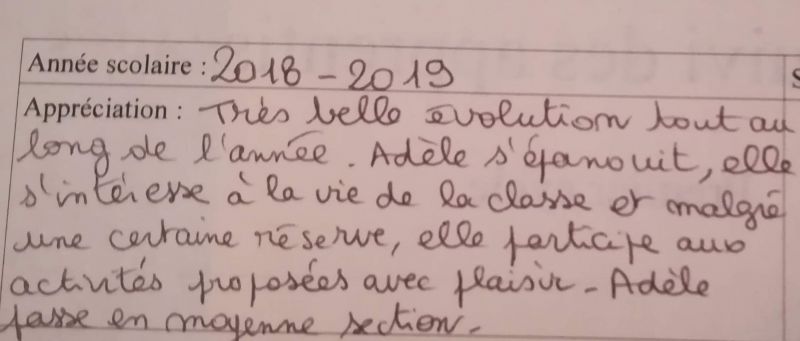 Année scolaire : 2018 - 2019
S
Appréciation : Très belle évolution tout au
long de l'année. Adèle s'épanouit, elle
s'intéresse à la vie de la classe et malgré
une certaine réserve, elle participe aux
activités proposées avec plaisir - Adèle
passe en moyenne section -